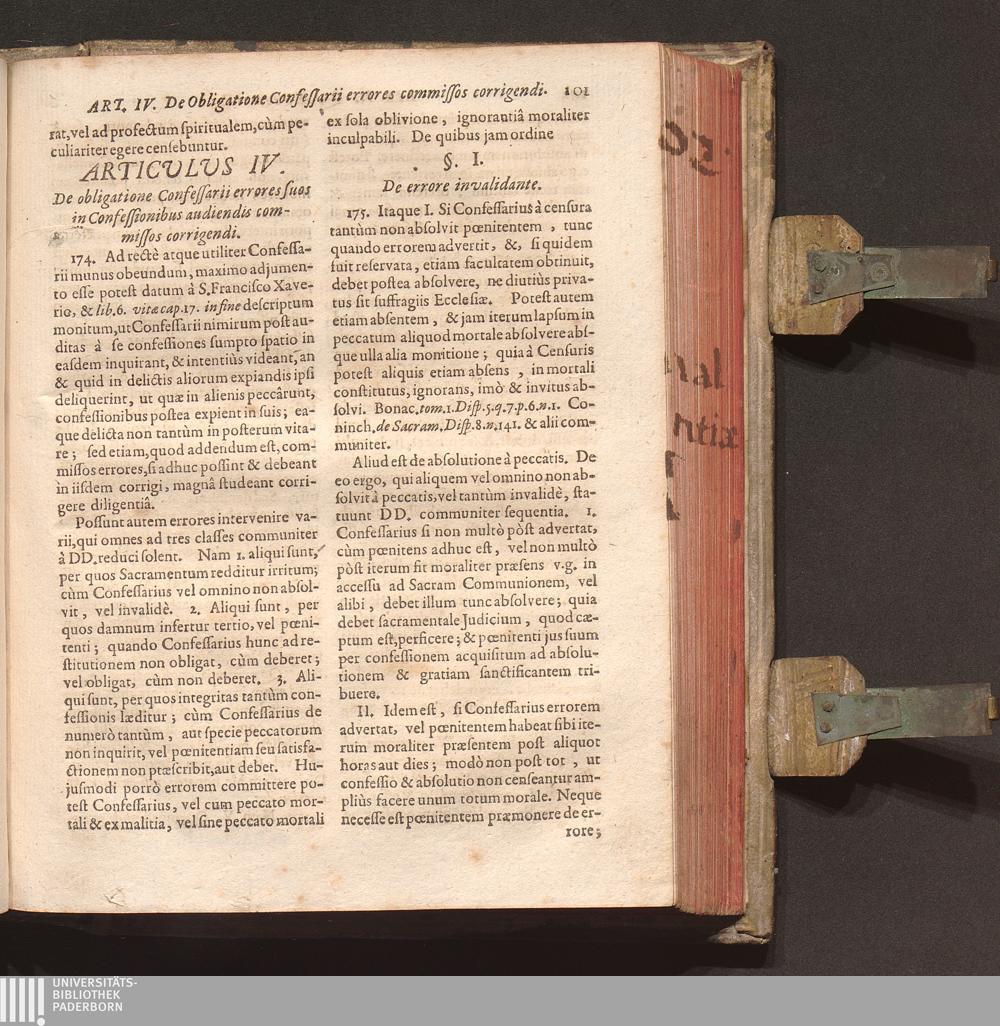 ART. IV. De Obligatione Confeſſarii errores commiſſos corrigendi. 101
rat, vel ad profectum ſpiritualem, cùm pe-
culiariter egere cenſebuntur.
ARTICULUS IV.
De obligatione Confeſſarii errores ſuos
in Confeſſionibus audiendis com-
miſſos corrigendi.
174. Ad rectè atque utiliter Confeſſa-
rii munus obeundum, maximo adjumen-
to eſſe poteſt datum à S. Franciſco Xave-
rio, & lib. 6. vitæ cap. 17. in fine deſcriptum
monitum, ut Confeſſarii nimirum poſt au-
ditas à ſe confeſſiones ſumpto ſpatio in
eaſdem inquirant, & intentiùs videant, an
& quid in delictis aliorum expiandis ipſi
deliquerint, ut quæ in alienis peccârunt,
confeſſionibus poſtea expient in ſuis; ea-
que delicta non tantùm in poſterum vita-
re; ſed etiam, quod addendum eſt, com-
miſſos errores, ſi adhuc poſſint & debeant
in iiſdem corrigi, magnâ ſtudeant corri-
gere diligentiâ.
Poſſunt autem errores intervenire va-
rii, qui omnes ad tres claſſes communiter
à DD. reduci ſolent. Nam 1. aliqui ſunt,
per quos Sacramentum redditur irritum;
cùm Confeſſarius vel omnino non abſol-
vit, vel invalidè. 2. Aliqui ſunt, per
quos damnum infertur tertio, vel pœni-
tenti; quando Confeſſarius hunc ad re-
ſtitutionem non obligat, cùm deberet;
vel obligat, cùm non deberet. 3. Ali-
qui ſunt, per quos integritas tantùm con-
feſſionis læditur; cùm Confeſſarius de
numerò tantùm, aut ſpecie peccatorum
non inquirit, vel pœnitentiam ſeu ſatisfa-
ctionem non præſcribit, aut debet. Hu-
juſmodi porrò errorem committere po-
teſt Confeſſarius, vel cum peccato mor-
tali & ex malitia, vel ſine peccato mortali
ex ſola oblivione, ignorantiâ moraliter
inculpabili. De quibus jam ordine
§. I.
De errore invalidante.
175. Itaque I. Si Confeſſarius à cenſura
tantùm non abſolvit pœnitentem, tunc
quando errorem advertit, &, ſi quidem
fuit reſervata, etiam facultatem obtinuit,
debet poſtea abſolvere, ne diutiùs priva-
tus ſit ſuffragiis Eccleſiæ. Poteſt autem
etiam abſentem, & jam iterum lapſum in
peccatum aliquod mortale abſolvere abſ-
que ulla alia monitione; quia à Cenſuris
poteſt aliquis etiam abſens, in mortali
conſtitutus, ignorans, imò & invitus ab-
ſolvi. Bonac. tom. 1. Diſp. 5. q. 7. p. 6. n. 1. Co-
ninch. de Sacram. Diſp. 8. n. 141. & alii com-
muniter.
Aliud eſt de abſolutione à peccatis. De
eo ergo, qui aliquem vel omnino non ab-
ſolvit à peccatis, vel tantùm invalidè, ſta-
tuunt DD. communiter ſequentia. 1.
Confeſſarius ſi non multò pòſt advertat,
cùm pœnitens adhuc eſt, vel non multò
pòſt iterum fit moraliter præſens v.g. in
acceſſu ad Sacram Communionem, vel
alibi, debet illum tunc abſolvere; quia
debet ſacramentale Judicium, quod cæ-
ptum eſt, perficere; & pœnitenti jus ſuum
per confeſſionem acquiſitum ad abſolu-
tionem & gratiam ſanctificantem tri-
buere.
II. Idem eſt, ſi Confeſſarius errorem
advertat, vel pœnitentem habeat ſibi ite-
rum moraliter præſentem poſt aliquot
horas aut dies; modò non poſt tot, ut
confeſſio & abſolutio non cenſeantur am-
pliùs facere unum totum morale. Neque
neceſſe eſt pœnitentem præmonere de er-
rore;
UNIVERSITÄTS-
BIBLIOTHEK
PADERBORN